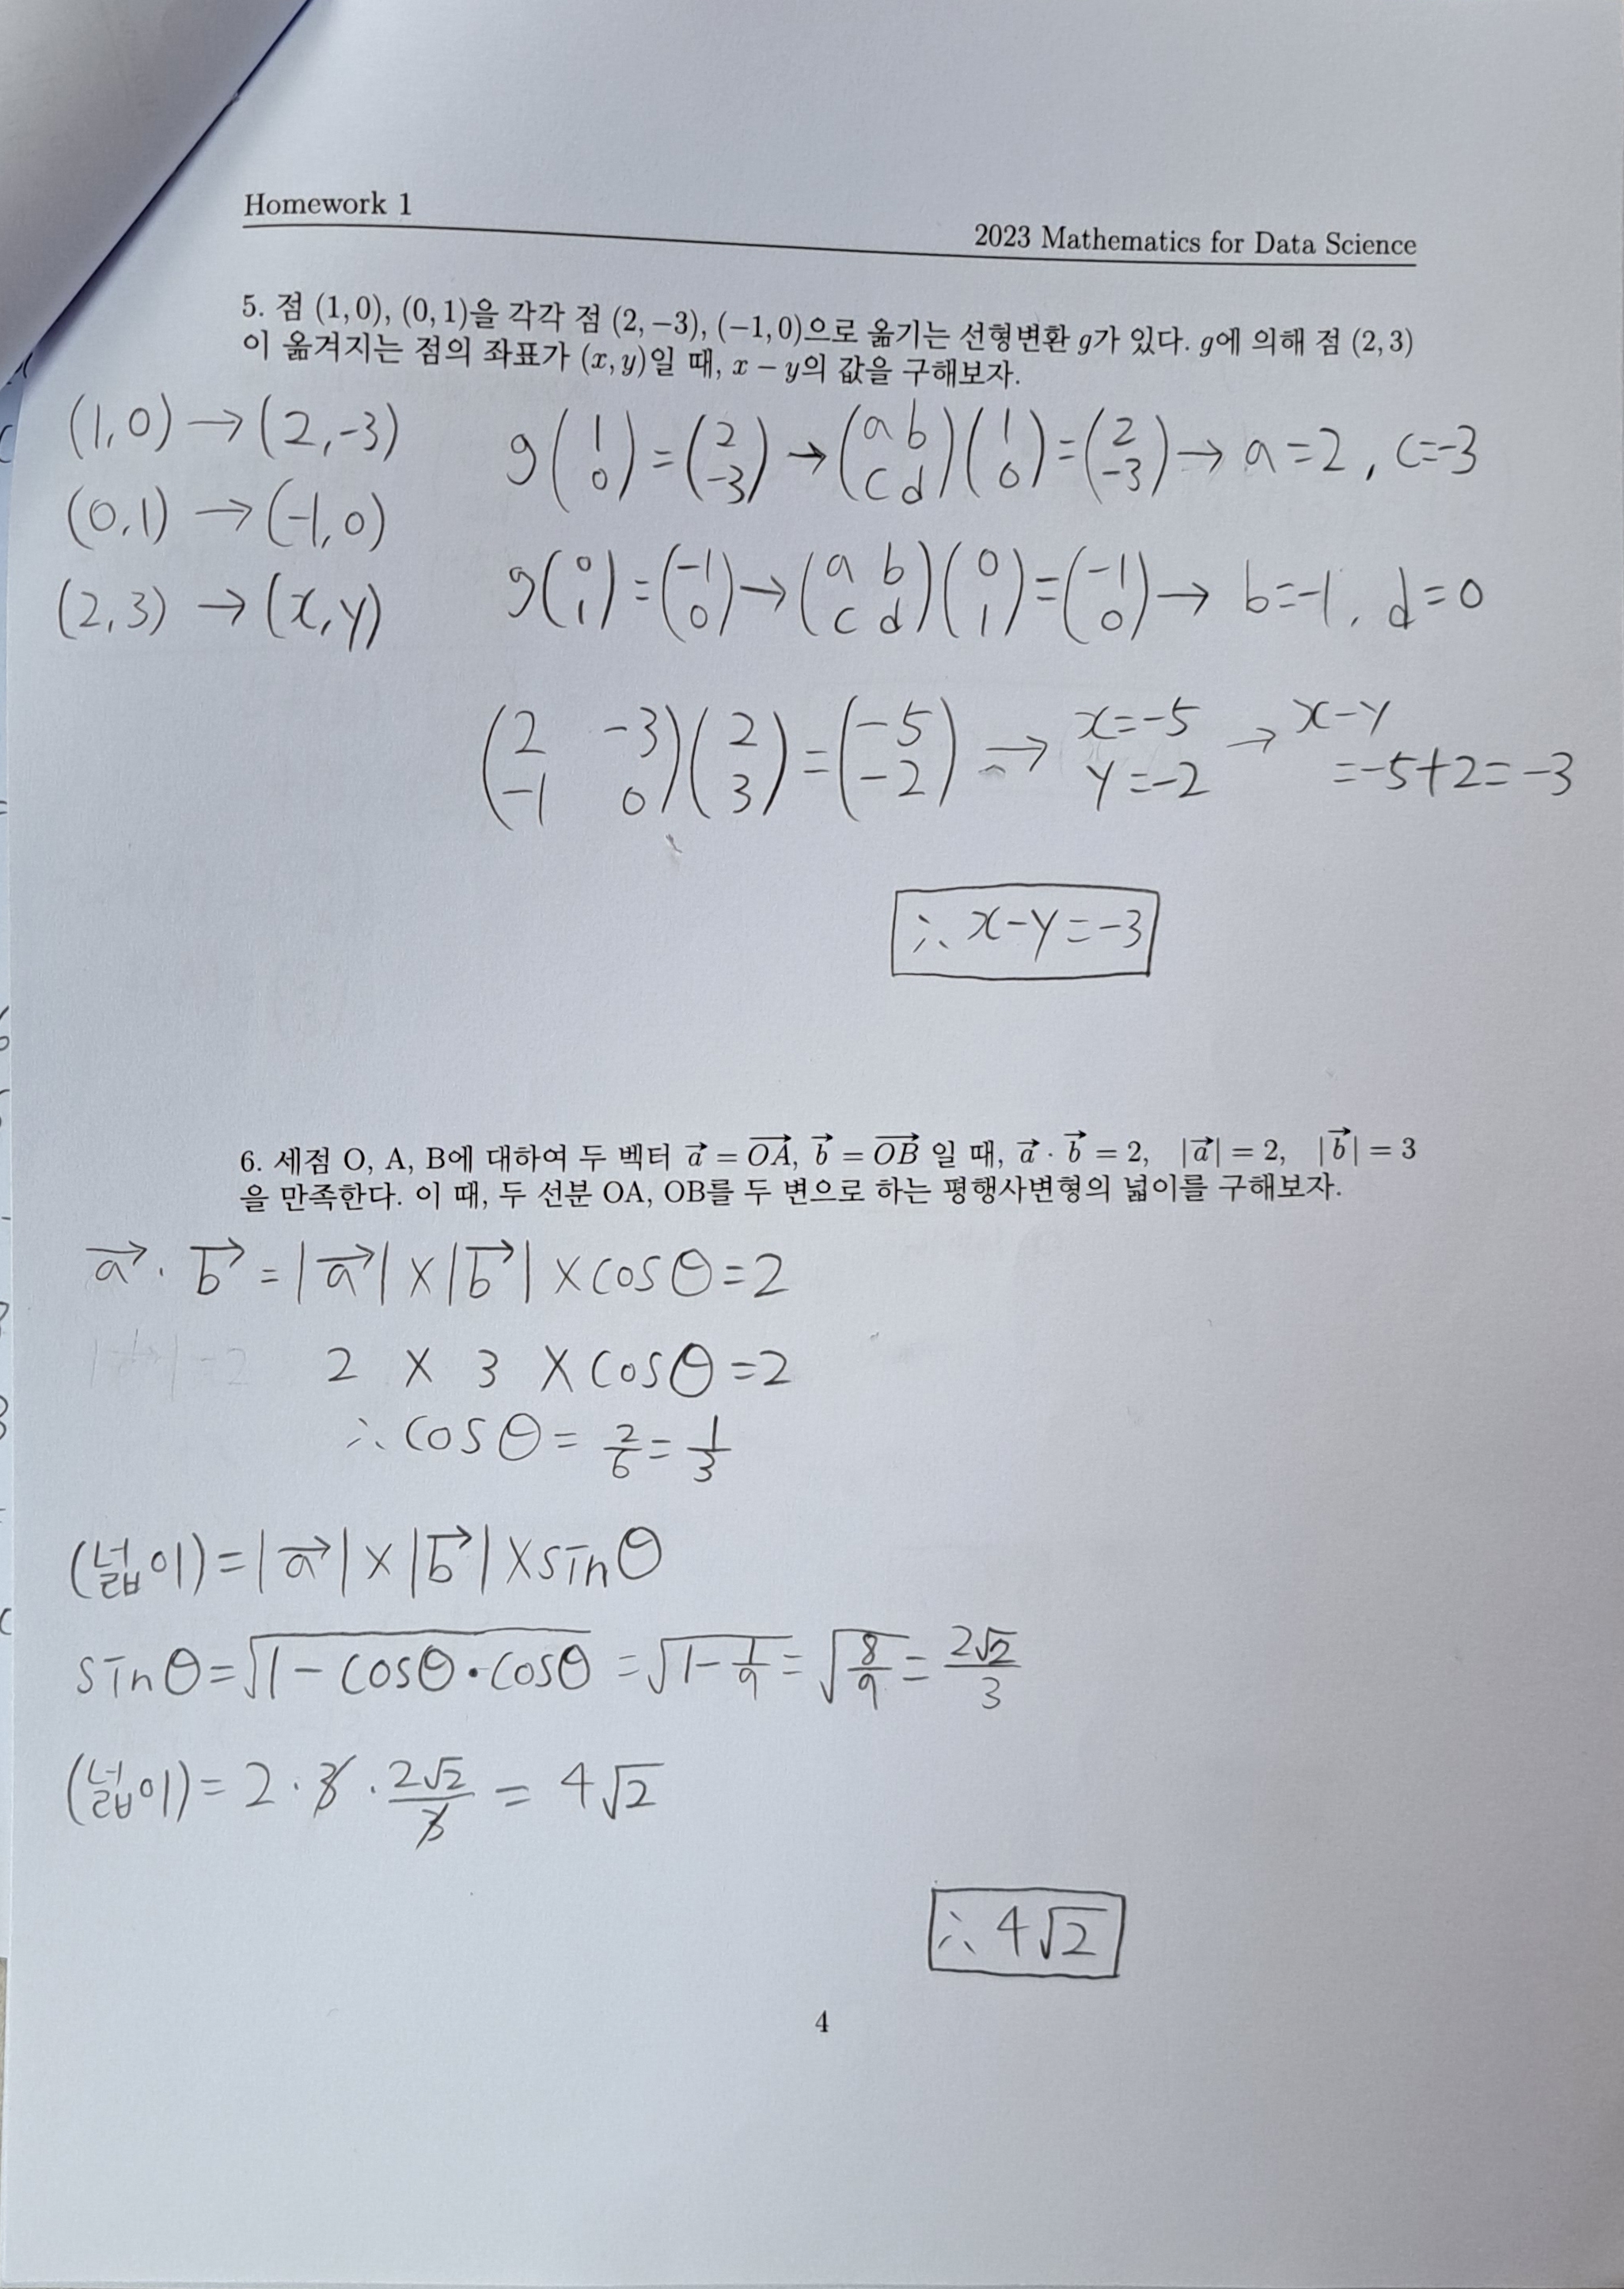 Homework 1
2023 Mathematics for Data Science
5. 점 (1, 0), (0, 1)을 각각 점 (2, −3), (−1, 0)으로 옮기는 선형변환 g가 있다. g에 의해 점 (2, 3)
이 옮겨지는 점의 좌표가 (x, y)일 때, x − y의 값을 구해보자.
(1,0) → (2,-3)
(0,1) → (-1,0)
(2,3) → (x,y)
g(1 0) = (2 -3) → (a b c d)(1 0) = (2 -3) → a=2, c=-3
g(0 1) = (-1 0) → (a b c d)(0 1) = (-1 0) → b=-1, d=0
(2 -3 -1 0)(2 3) = (-5 -2) → x=-5 y=-2 → x-y =-5+2=-3
∴ x-y=-3
6. 세점 O, A, B에 대하여 두 벡터 a⃗ = OA⃗, b⃗ = OB⃗ 일 때, a⃗ · b⃗ = 2, |a⃗| = 2, |b⃗| = 3
을 만족한다. 이 때, 두 선분 OA, OB를 두 변으로 하는 평행사변형의 넓이를 구해보자.
a⃗ · b⃗ = |a⃗| × |b⃗| × cosθ = 2
2 × 3 × cosθ = 2
∴ cosθ = 2/6 = 1/3
(넓이) = |a⃗| × |b⃗| × sinθ
sinθ = √(1 - cosθ·cosθ) = √(1 - 1/9) = √(8/9) = 2√2/3
(넓이) = 2 · 3 · 2√2/3 = 4√2
∴ 4√2
4